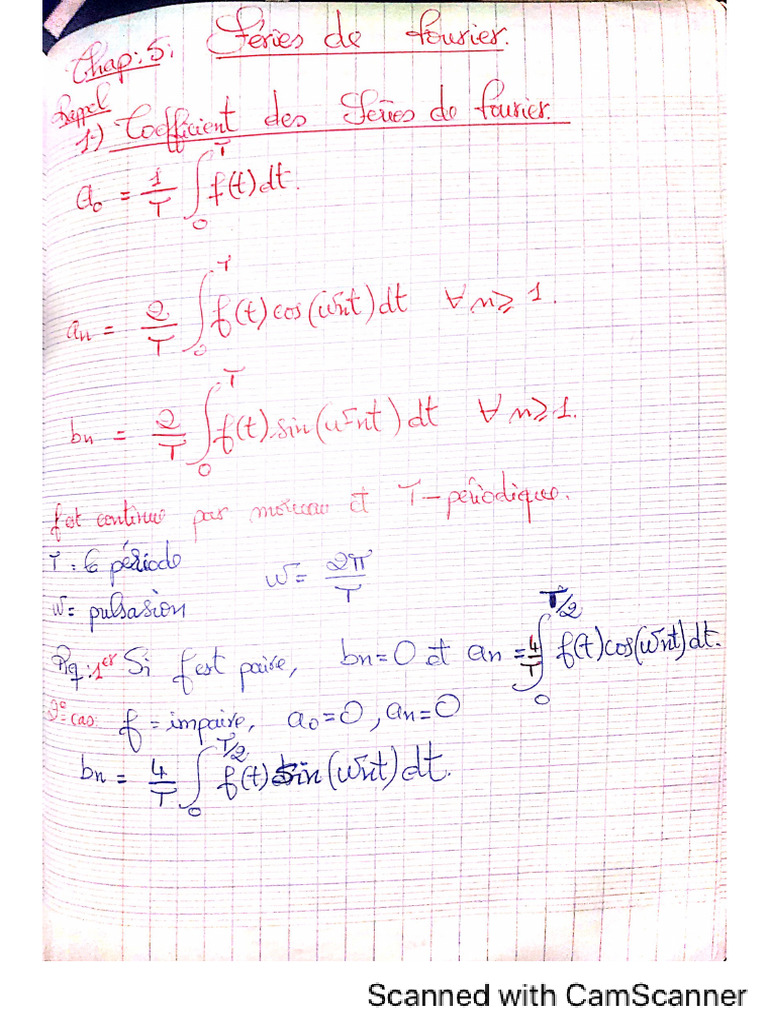 Chap: 5: Séries de fourier.
Rappel
1-) Coefficient des Séries de fourier.
a₀ = 1/T ∫₀ᵀ f(t)dt.
aₙ = 2/T ∫₀ᵀ f(t)cos(ωnt)dt ∀ n ≥ 1.
bₙ = 2/T ∫₀ᵀ f(t).sin(ωnt)dt ∀ n ≥ 1.
f est continue par morceau et T-périodique.
T: la période
ω = 2π/T
ω = pulsasion
Rq: 1er Si f est paire, bn = 0 et an = 4/T ∫₀^(T/2) f(t)cos(ωnt)dt.
2e cas f = impaire, a₀ = 0, an = 0
bn = 4/T ∫₀^(T/2) f(t) sin(ωnt)dt.
Scanned with CamScanner